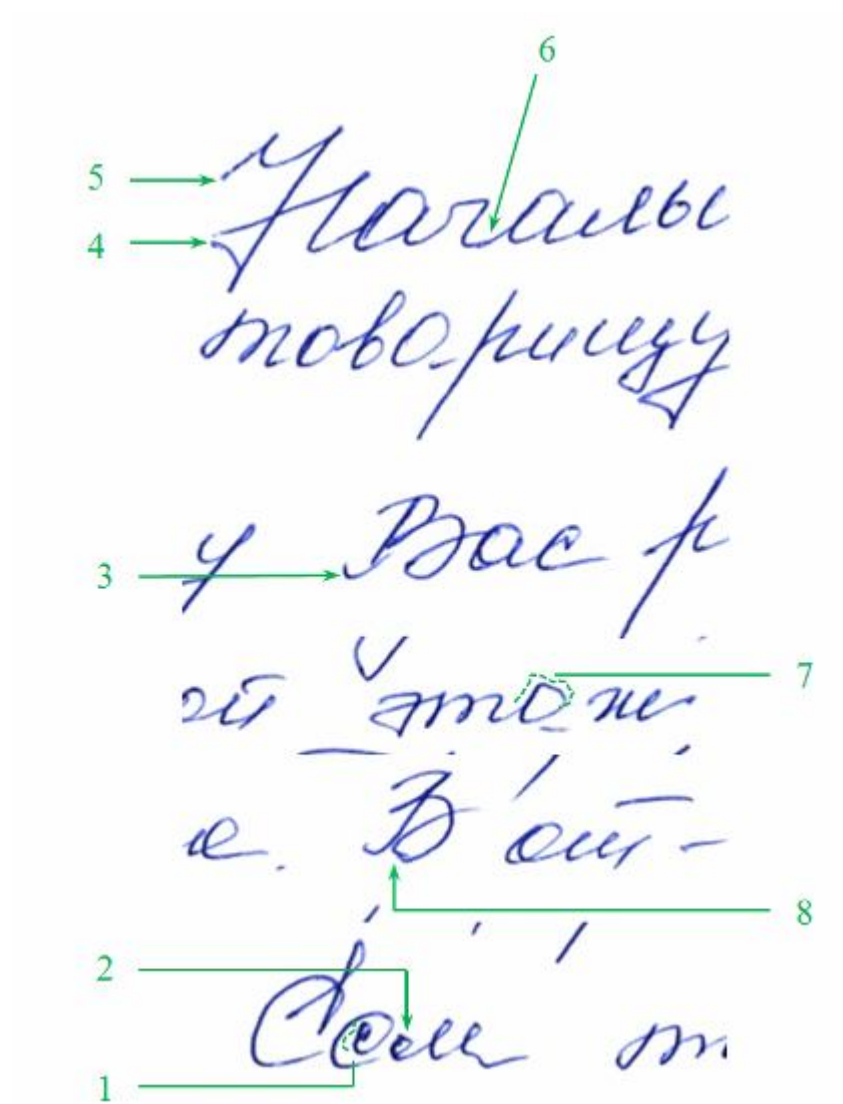 6
5 Началы
4
товарищу
3 у Вас р
7
ой этож
е. В от-
8
2
Сам т
1